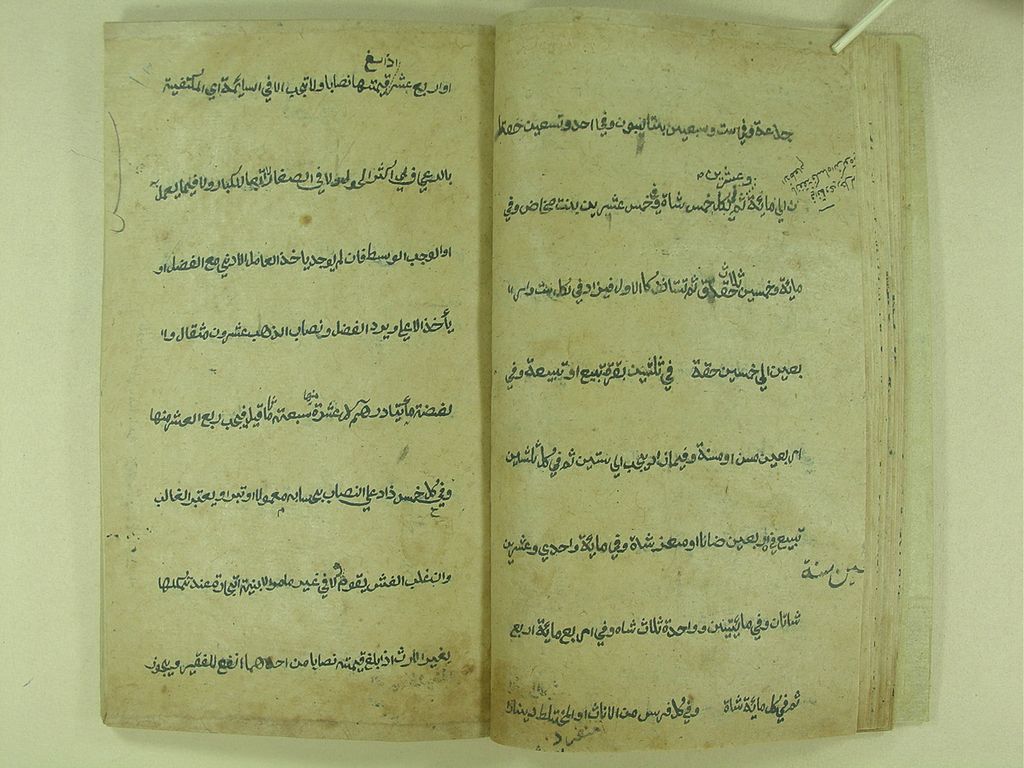 جذعة وفي ست وسبعين بنتا لبون وفي احد وتسعين حقتا
وعشرين
ن الي مائة ثم في كل خمس شاة وفي خمس عشرين بنت مخاض وفي
مائة وخمسين ثلث حقاق ثم تستانف كالاول فيزاد في كل ست وار
بعين الي خمسين حقة في ثلثين بقرة تبيع او تبيعة وفي
اربعين مسن او مسنة وفيما زاد يحسب الي ستين ثم في كل ثلثين
تبيع وفي اربعين ضانا او معز شاة وفي ماية واحدي وعشرين
شاتان وفي مايتين وواحدة ثلاث شاه وفي اربع ماية اربع
ثم في كل ماية شاة وفي كل فرس من الاناث او المختلط دينار
اذا بلغ
او اربع عشر قيمتها نصابا ولا تجب الا في السائمة اي المكتفية
بالرعي في اكثر الحول ولا في الصغار الا تبعا للكبار ولا فيما يعمل
او الوجب الوسط فان لم يوجد ياخذ العامل الادني مع الفضل او
يأخذ الاعلي ويرد الفضل ونصاب الذهب عشرون مثقال وا
لفضة مأيتا درهم كل عشرة منها سبعة مثاقيل فيجب ربع العشر منها
وفي كل خمس زاد علي النصاب بحسابه معمولا او تبرا ويعتبر الغالب
وان غلب الغش يقوم ولا في غير ما مر الا بنية التجارة عند تملكها
بغير الارث اذ بلغ قيمته نصابا من احدهما انفع للفقير ويجوز